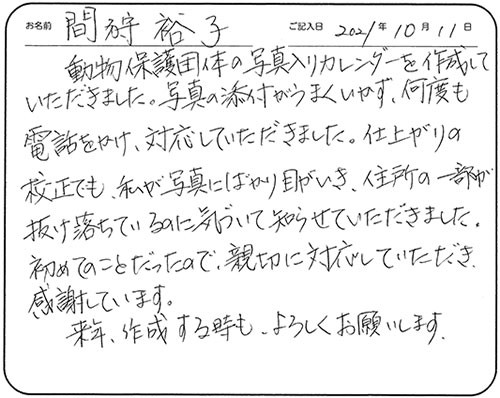 お名前 間狩 裕子 ご記入日 2021年10月11日
動物保護団体の写真入りカレンダーを作成して
いただきました。写真の添付がうまくいかず、何度も
電話をかけ、対応していただきました。仕上がりの
校正でも、私が写真にばかり目がいき、住所の一部が
抜け落ちているのに気づいて知らせていただきました。
初めてのことだったので、親切に対応していただき、
感謝しています。
来年、作成する時も、よろしくお願いします。